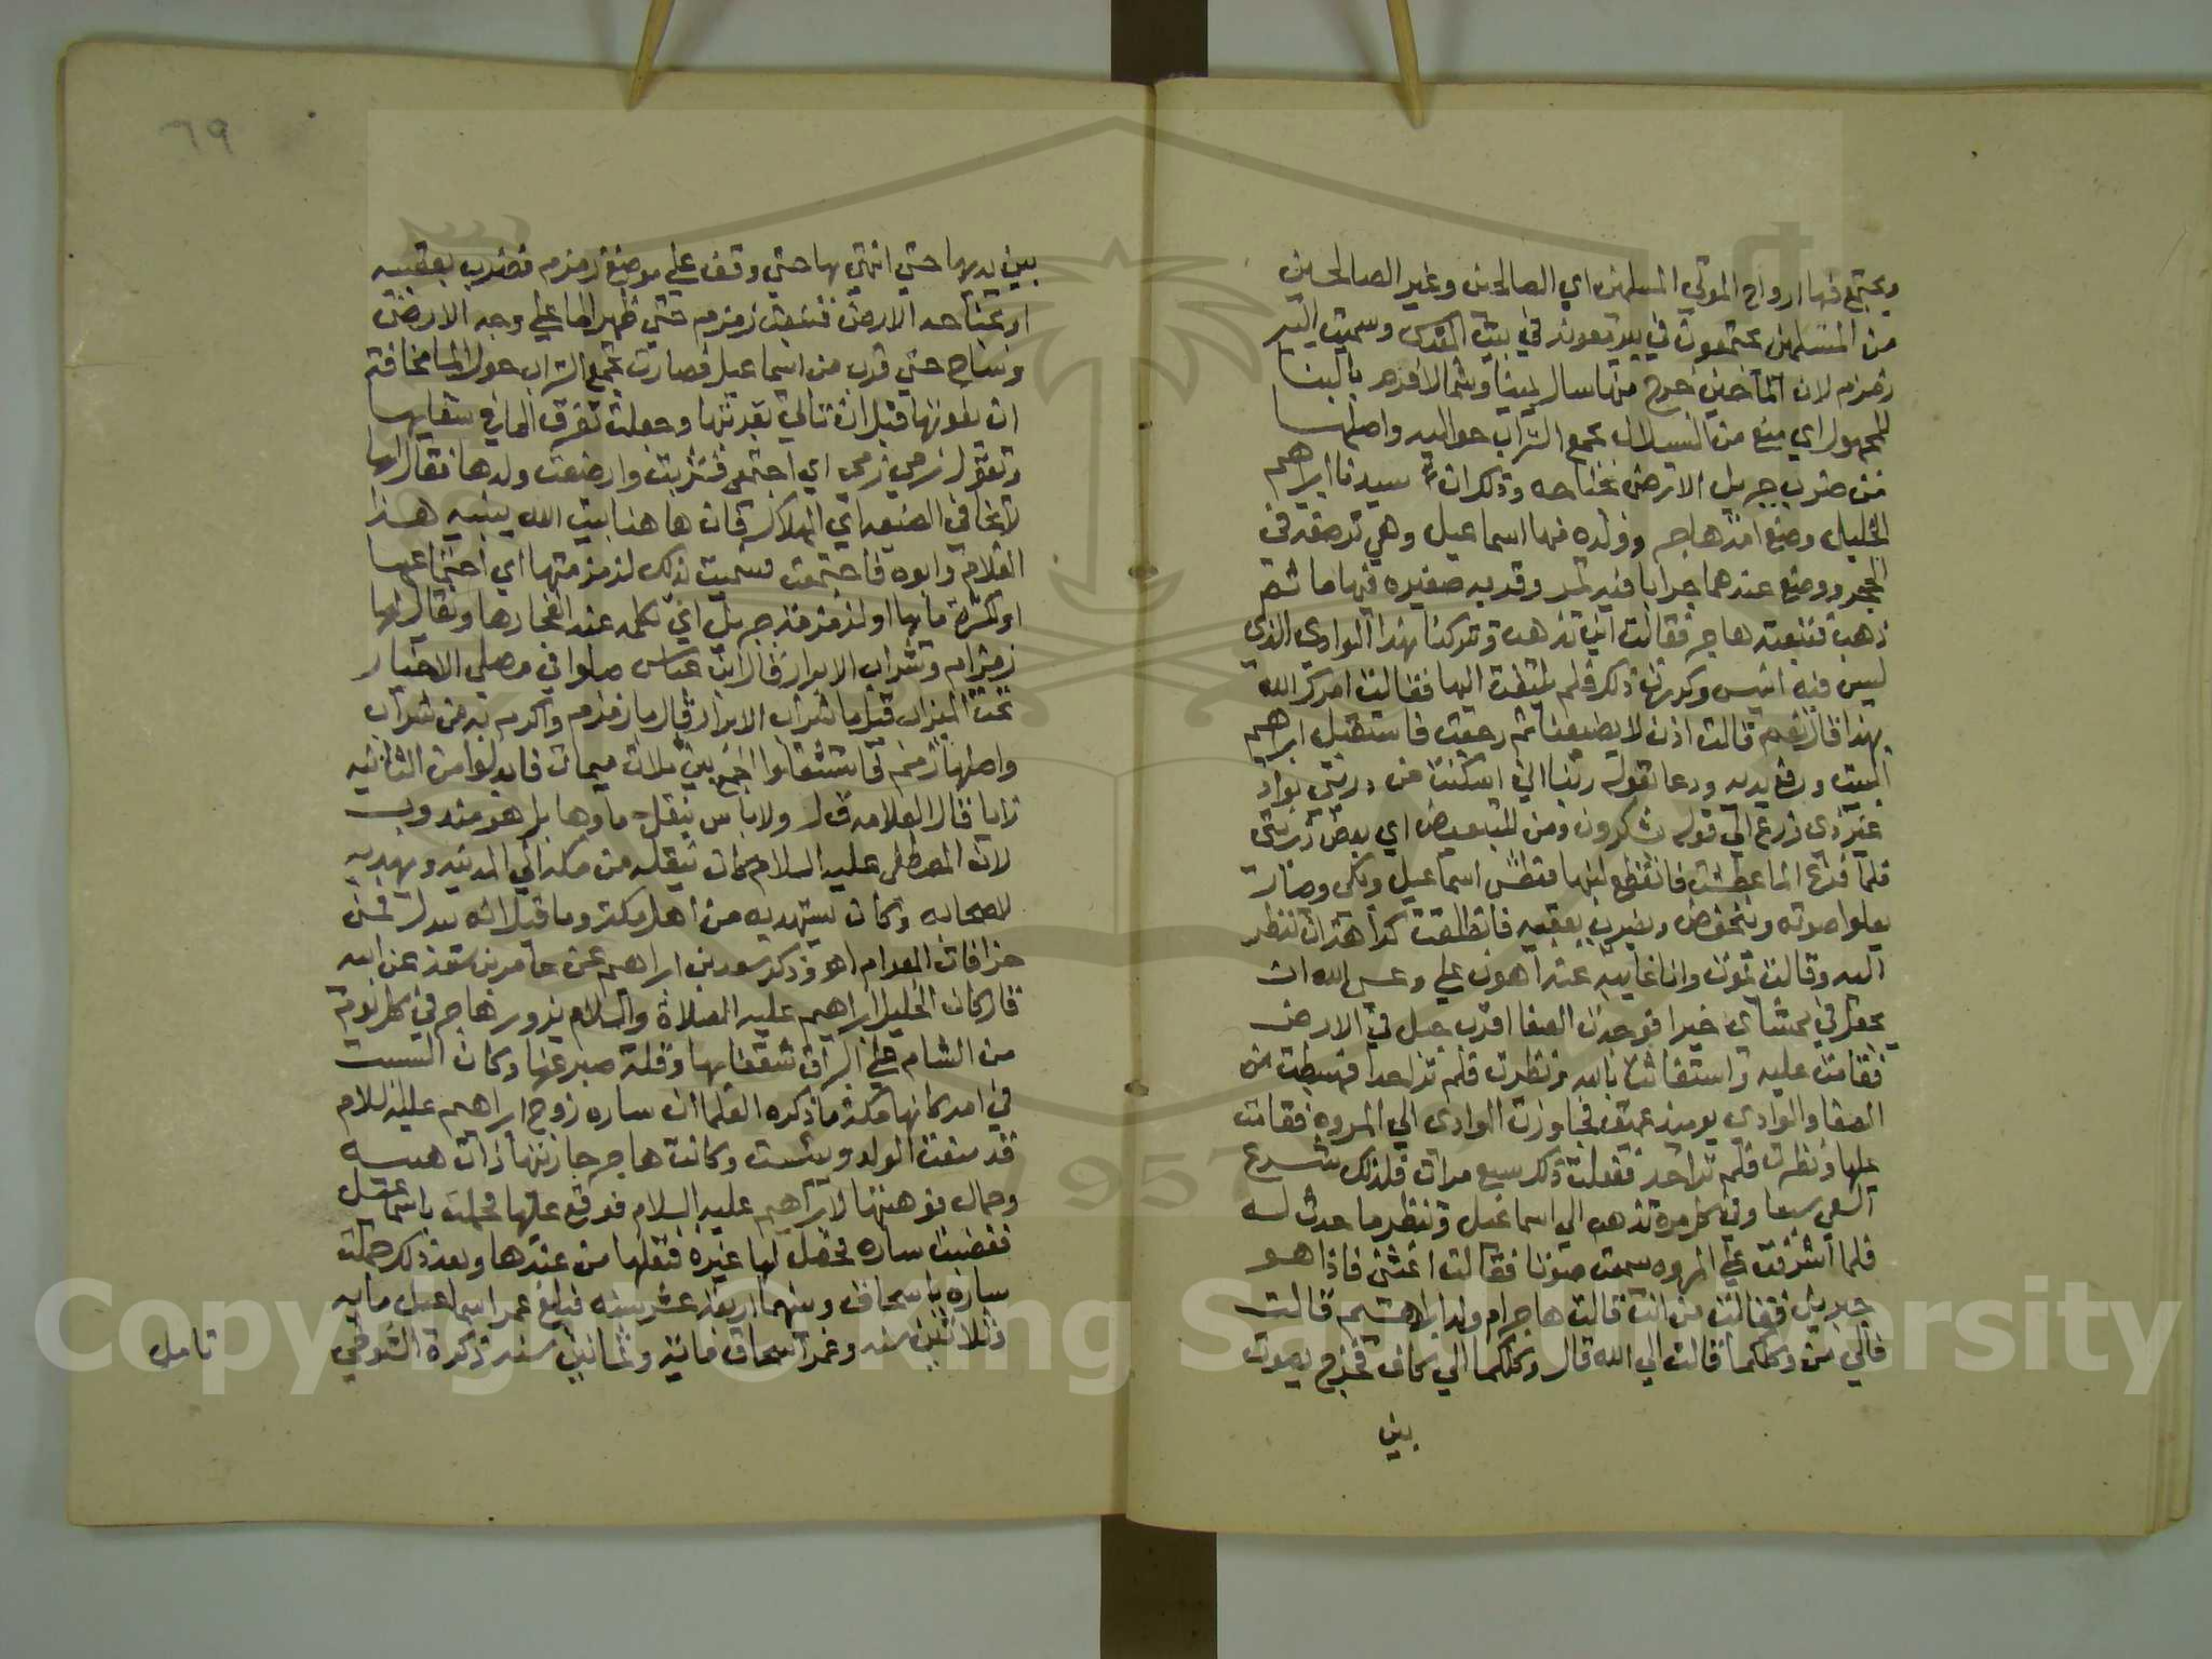 ويجتمع فيها ارواح الموتي المسلمين اي الصالحين وغير الصالحين
من المسلمين يجتمعون في بير في بيت المقدس وسميت البير
زمزم لان الما حين خرج منها سال يمينا وشمالا فزم بالبنا
للمجهول اي منع من السيلان بجمع التراب حواليه واصلها
من ضرب جبريل الارض بجناحه وذلك ان سيدنا ابراهيم
الخليل وضع امه هاجر وولده منها اسماعيل وهي ترضعه في
الحجر ووضع عندهما جرابا فيه تمر وقربه صغيره فيها ما ثم
ذهب فتبعته هاجر فقالت اين تذهب وتتركنا بهذا الوادي الذي
ليس فيه انيس وكررت ذلك فلم يلتفت اليها فقالت امرك الله
بهذا قال نعم قالت اذن لا يضيعنا ثم رجعت فاستقبل ابراهيم
البيت ورفع يديه ودعا بقوله ربنا اني اسكنت من ذريتي بواد
غير ذي زرع الي قوله يشكرون ومن للتبعيض اي بعض ذريتي
فلما فرغ الما عطشت فانقطع لبنها فعطش اسماعيل وبكي وصارت
يعلوا صوته وينخفض ويضرب بعقبيه فانطلقت كراهة ان تنظر
اليه وقالت يموت وانا غايبه عنه اهون علي وعسي الله ان
يجعل في ممشاي خيرا فوجدت الصفا اقرب جبل في الارض
فقامت عليه واستغاثت بالله ونظرت فلم تر احدا فهبطت من
الصفا والوادي يوميذ عميق فجاوزت الوادي الي المروه فقامت
عليها ونظرت فلم تر احد ففعلت ذلك سبع مرات فلذلك شرع
السعي سبعا وفي كل مره تذهب الي اسماعيل وتنظر ما حدث له
فلما اشرفت علي المروه سمعت صوتا فقالت اغثني فاذا هو
جبريل فقالت من انت قالت هاجر ام ولد ابراهيم قالت
فالي من وكلكما قالت الي الله قال وكلكما الي كاف فخرج بصوت
بين
٦٩
بين يديهما حتي انتهي بها حتي وقف علي موضع زمزم فضرب بعقبيه
او بجناحه الارض فنبعت زمزم حتي ظهر الما علي وجه الارض
وساح حتي قرب من اسماعيل فصارت تجمع التراب حول الما مخافة
ان يفوتها قبل ان تاتي بقربتها وجعلت تغرف الما في سقايها
وتقول زمي زمي اي اجتمعي فشربت وارضعت ولدها فقال لها
لا تخافي الضيعه اي الهلاك فان هاهنا بيت الله يبنيه هذا
الغلام وابوه فاجتمعت فسميت لذلك لزمزمتها اي اجتماعها
او كثرة مايها او لزمزمة جبريل اي تكلمه عند انفجارها ويقال لها
زمزام وشراب الابرار قال ابن عباس صلوا في مصلي الاخيار
تحت الميزاب قيل ما شراب الابرار قال ما زمزم واكرم به من شراب
واصلها زمم فاستثقلوا الجمع بين ثلاث ميمات فابدلوا من الثانيه
زايا قال العلامه ولا باس بنقل ماوها بل هو مندوب
لان المصطفي عليه السلام كان ينقله من مكه الي المدينه ويهديه
لاصحابه وكان يستهديه من اهل مكة وما قيل انه يبدل فمن
خرافات العوام اهـ وذكر سعد بن ابراهيم عن عامر بن سعد عن ابيه
قال كان الخليل ابراهيم عليه الصلاة والسلام يزور هاجر في كل يوم
من الشام علي البراق شغفا بها وقلة صبر عنها وكان السبب
في امر كانها مكة ما ذكره العلما ان ساره زوج ابراهيم عليه السلام
قد منعت الولد ويئست وكانت هاجر جاريتها ذات هيبه
وجمال فوهبتها لابراهيم عليه السلام فوقع عليها فحملت باسماعيل
فغضبت ساره فحصل لها غيرة فنقلها من عندها وبعد ذلك حملت
ساره باسحاق وبينهما اربعة عشر سنه فبلغ عمر اسماعيل مايه
وثلاثين سنه وعمر اسحاق ماية وثمانين سنه ذكره
تامل
Copyright © King Saud University
1957